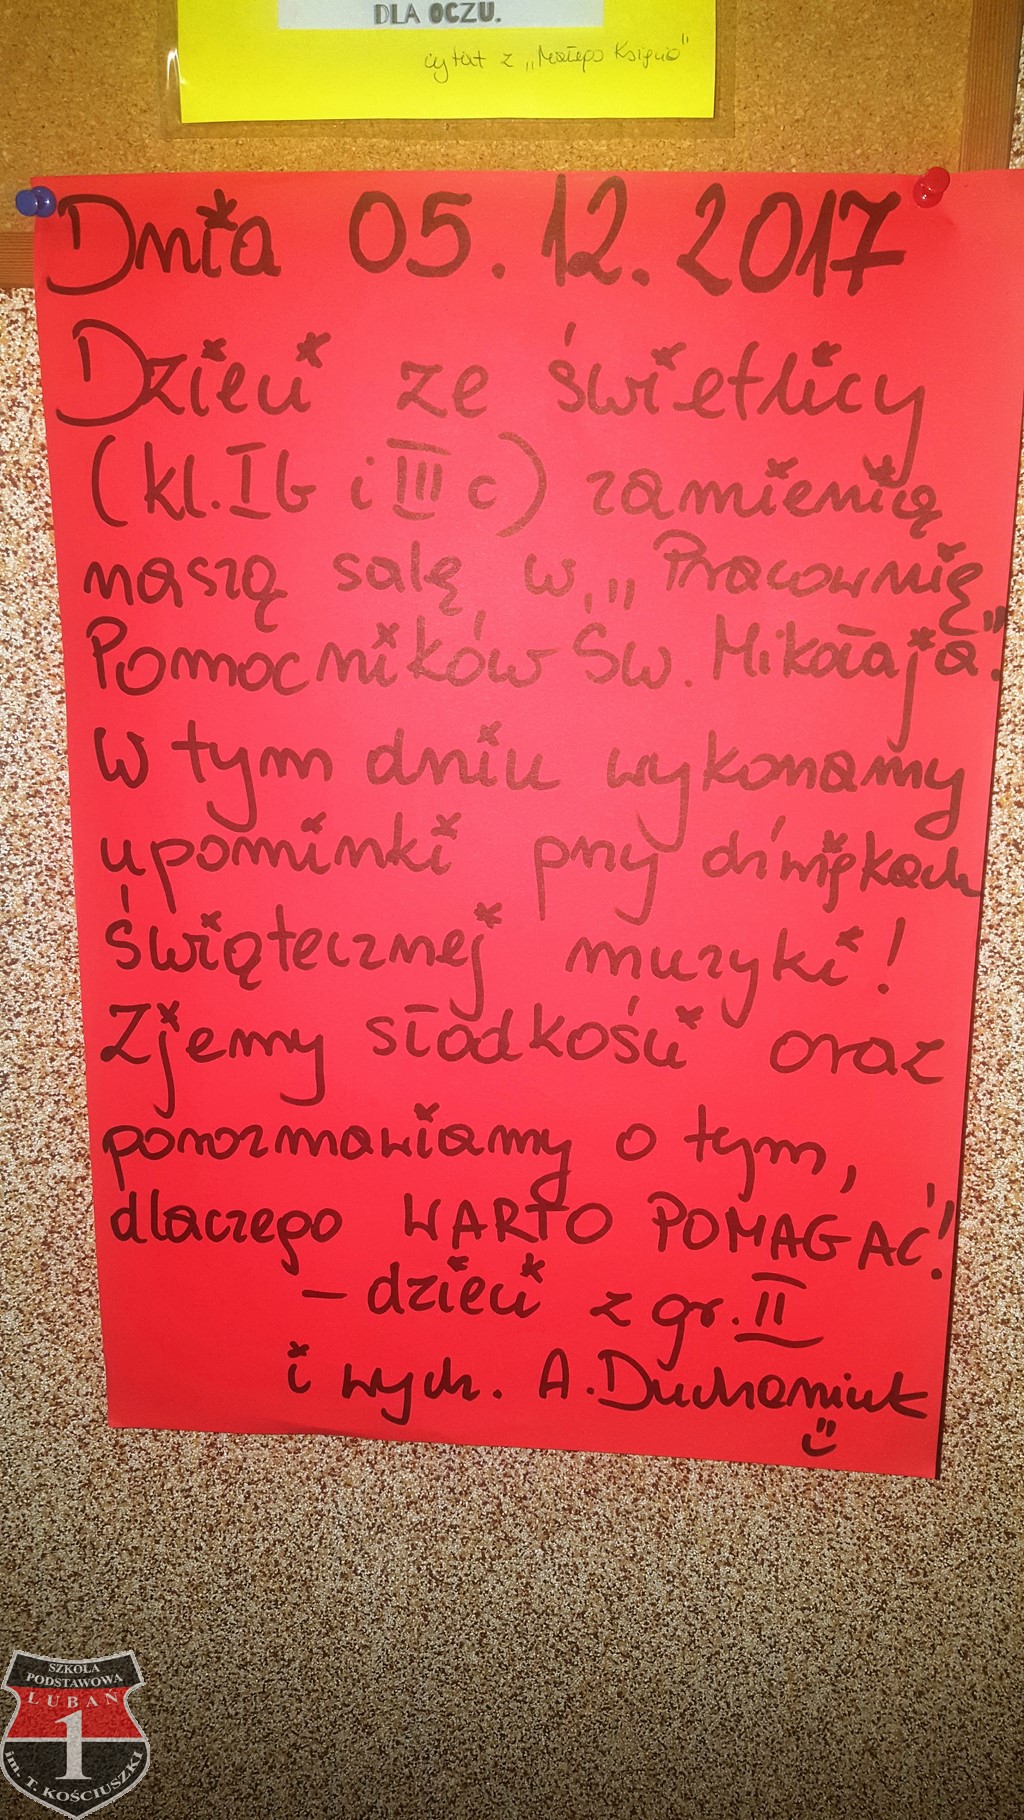 DLA OCZU.
cytat z „Małego Księcia"
Dnia 05.12.2017
Dzieci ze świetlicy
(kl. I b i III c) zamienią
naszą salę w „Pracownię
Pomocników Św. Mikołaja".
W tym dniu wykonamy
upominki przy dźwiękach
świątecznej muzyki!
Zjemy słodkości oraz
porozmawiamy o tym,
dlaczego WARTO POMAGAĆ!
- dzieci z gr. II
i wych. A. Duchaniuk
SZKOŁA
PODSTAWOWA
LUBAŃ
1
im. T. KOŚCIUSZKI